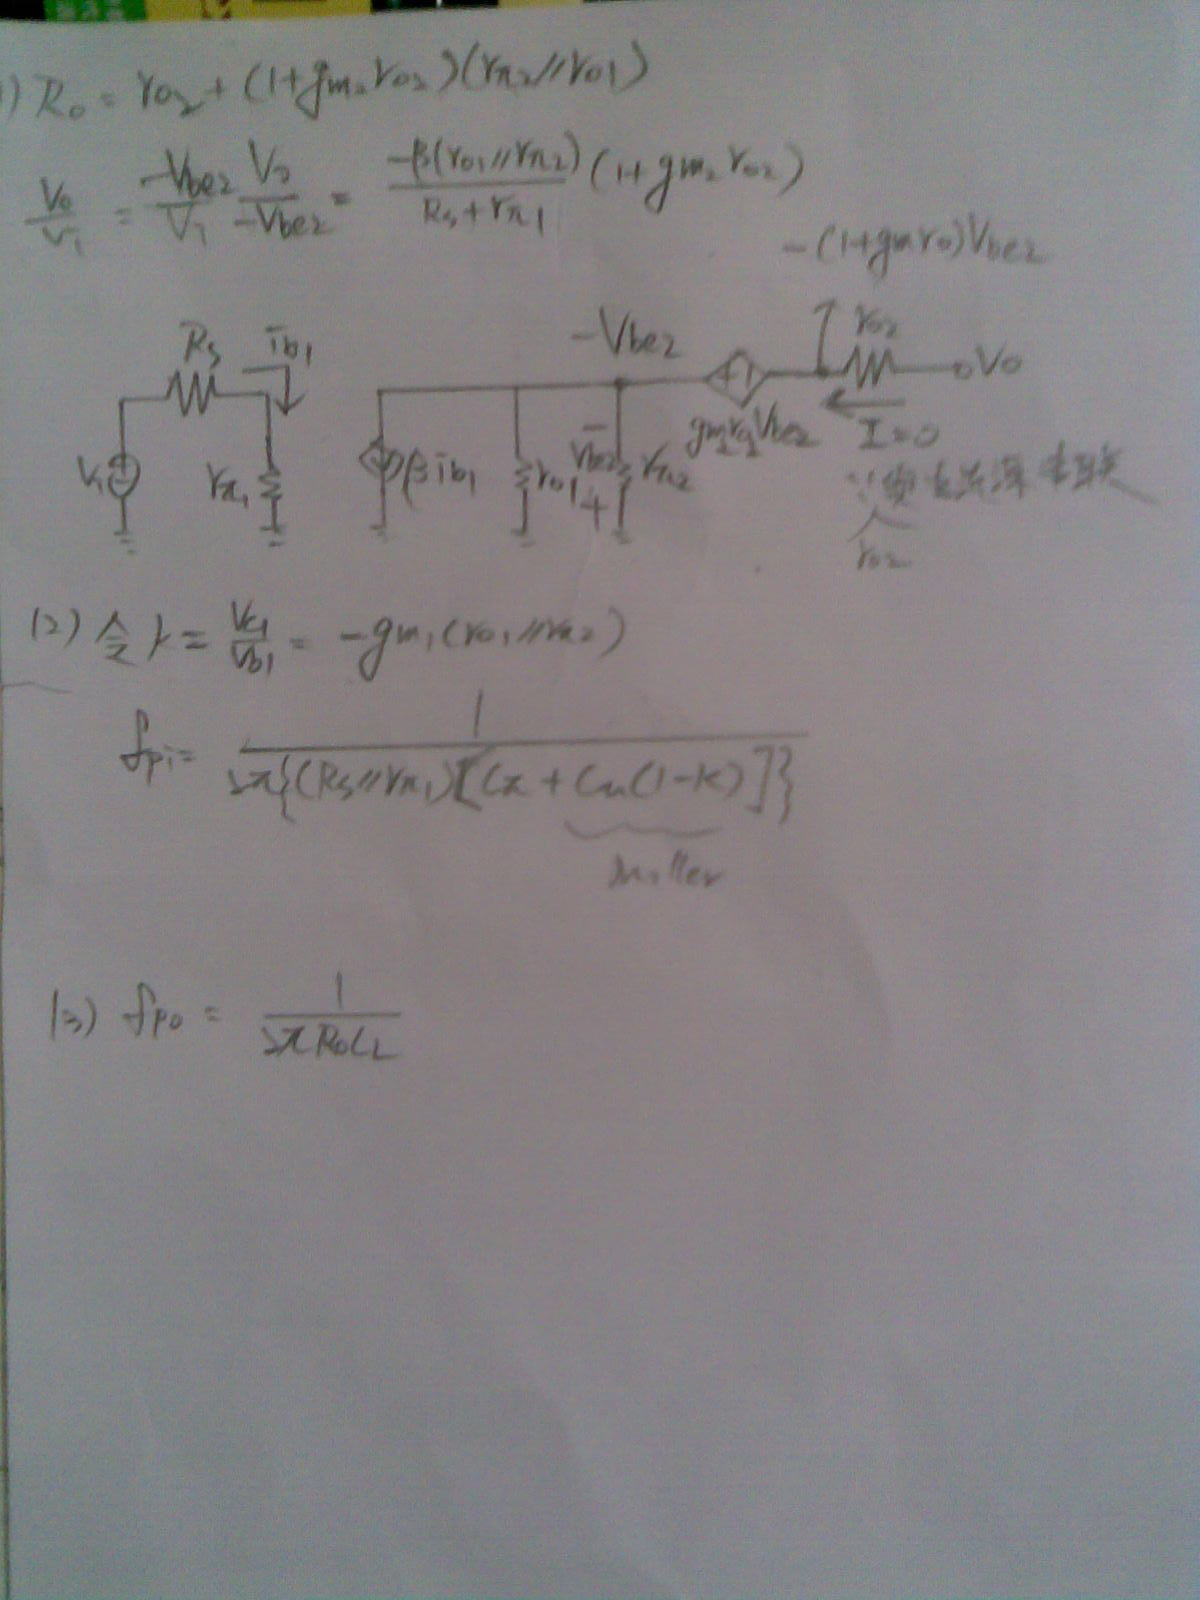 1) Ro = ro2 + (1+gm2ro2)(rπ2//ro1)
Vo/Vi = -Vbe2/Vi Vo/-Vbe2 = -β(ro1//rπ2)/(Rs+rπ1) (1+gm2ro2)
-(1+gmro)Vbe2
Rs ib1 -Vbe2 ro2 Vo
Vi rπ1 βib1 ro1 - Vbe2 + rπ2 gm2ro2Vbe2 I=0
ro2
(2) 令k = Vc1/Vb1 = -gm1(ro1//rπ2)
fpi = 1/2π{(Rs//rπ1)[Cπ + Cu(1-k)]}
miller
(3) fpo = 1/2πRoCL